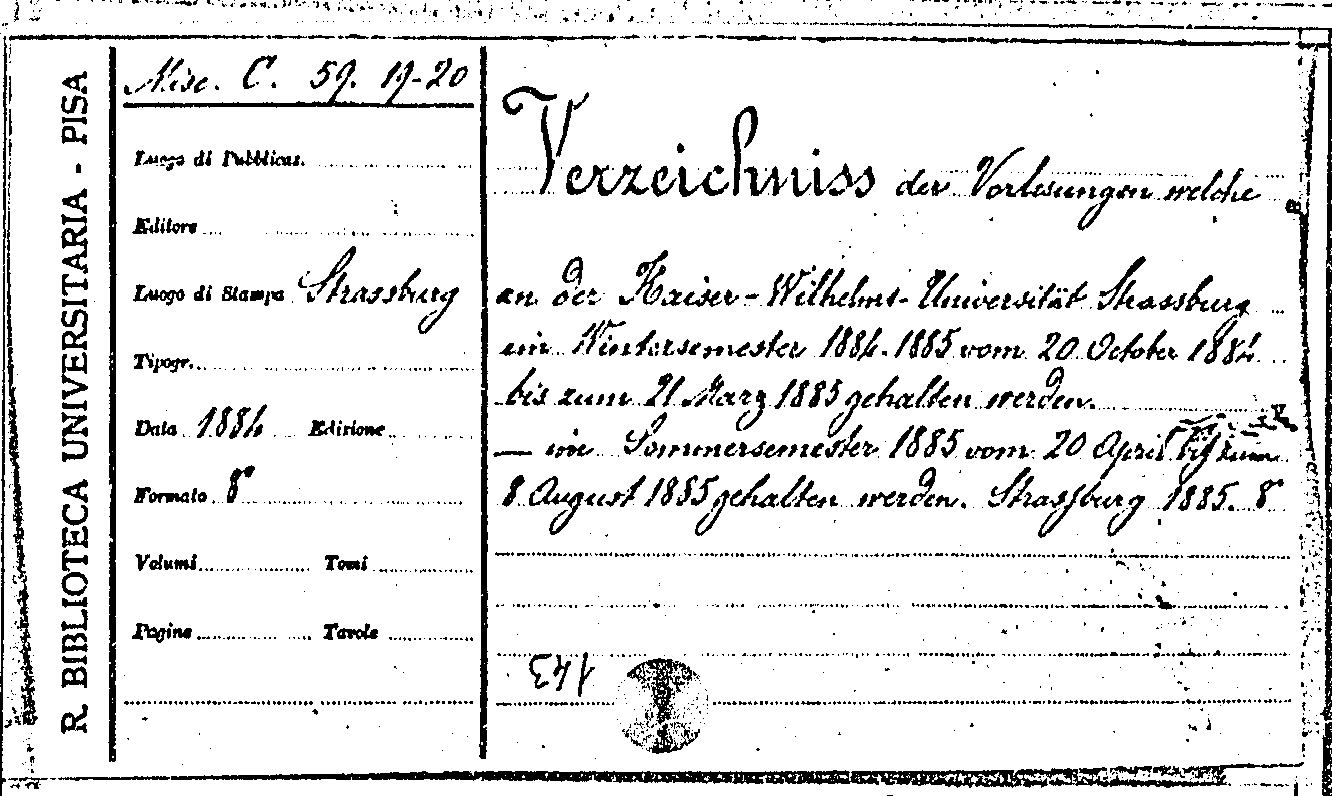 R. BIBLIOTECA UNIVERSITARIA - PISA
Misc. C. 59. 19-20
Luogo di Pubblicaz.
Editore
Luogo di Stampa Strassburg
Tipogr.
Data 1884 Edizione
Formato 8°
Volumi Tomi
Pagine Tavole
Verzeichniss der Vorlesungen welche
an der Kaiser-Wilhelms-Universität Strassburg
im Wintersemester 1884-1885 vom 20 October 1884
bis zum 21 Marz 1885 gehalten werden.
— im Sommersemester 1885 vom 20 April bis zum
8 August 1885 gehalten werden. Strassburg 1885. 8°
143